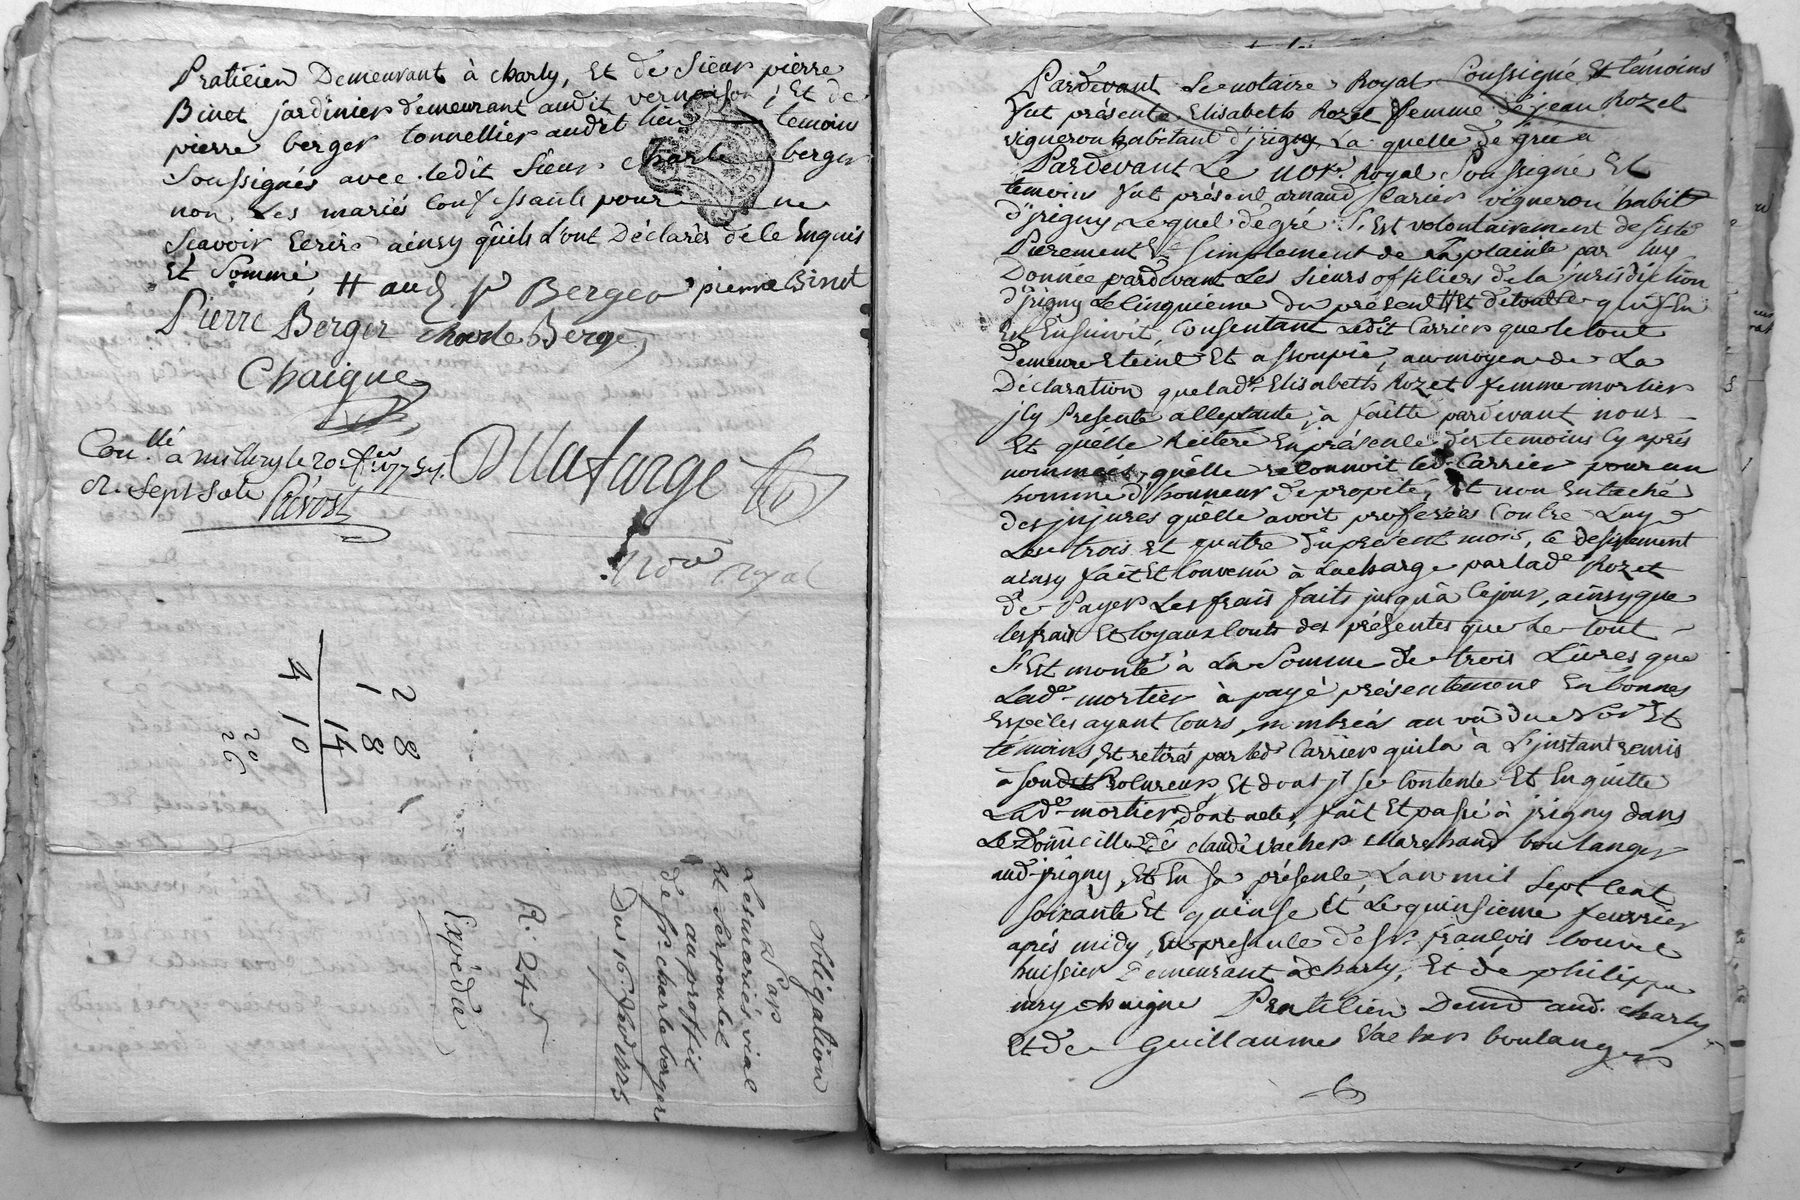 Praticien Demeurant à charly, Et de Sieur pierre
Binet jardinier demeurant audit vernaison, Et de
pierre berger tonnellier audit lieu temoins
Soussignés avec ledit Sieur charle berger
non Les mariés Confessants pour ne
Scavoir Ecrire ainsy quils d'ont Déclarés de ce Enquis
Et Sommé, # aud
Berger pierre Binet
Pierre Berger charle Berger
Chaigne
Con.llé a millery le 20
R. Sept Sols
Prévost
Dllafarge
Nore royal
28
1 8
14
4 10
20
26
Obligation
P. Sap
Les mariés vial
et
au proffit
de Sr. charle berger
Du 16.
R: 24 s
Expédié
Pardevant Le notaire Royal Soussigné Et témoins
fut présente Elisabeth Rozet femme de jean Rozet
vigneron habitant d'jrigny, La quelle de gré a
Pardevant Le not.re Royal Soussigné Et
temoins fut présent arnaud Carrier vigneron habitt
d'jrigny, Lequel de gré S'Est volontairement desisté
Purement Et Simplement de La plainte par luy
Donnée pardevant Les Sieurs officiers de la jurisdiction
d'jrigny Le Cinquieme du présent # Et de toutte qui S'En
En Ensuivit, Consentant Ledit Carrier que le tout
demeure Eteint Et assoupie, au moyen de La
Déclaration que lade. Elisabeth Rozet femme mortier
jcy Presente acceptante, a faitte pardevant nous
Et quélle Reitere En présence des temoins Cy après
nommés, quélle reconnoit led. Carrier pour un
homme d'honneur de propité, Et non Entaché
des jnjures quélle avoit proferées Contre Luy
Les trois Et quatre du présent mois, le desistement
ainsy fait Et Convenu à La charge par lade Rozet
de Payer Les frais faits jusqu'à Ce jour, ainsy que
les frais Et loyaux Couts des présentes que Le tout
S'Est monté à La Somme de trois Livres que
Lade. mortier à payé présentement En bonnes
Espèces ayant Cours, nombrées au vû du Nore Et
témoins, Et retirés par led. Carrier quil a à L'jnstant remis
à Sondt Procureur, Et dont jl se Contente Et En quitte
Lade mortier, dont acte, fait Et passé à jrigny dans
Le Domicille de claude vacher marchand boulanger
aud. jrigny, Et En Sa présence, L'an mil Sept Cent
Soixante Et quinse Et Le quinsieme feuvrier
après midy, En presence de Sr. françois bouvet
huissier Demeurant à charly, Et de philippe
mry chaigne Praticien Demt aud. charly
Et de Guillaume Vacher boulanger